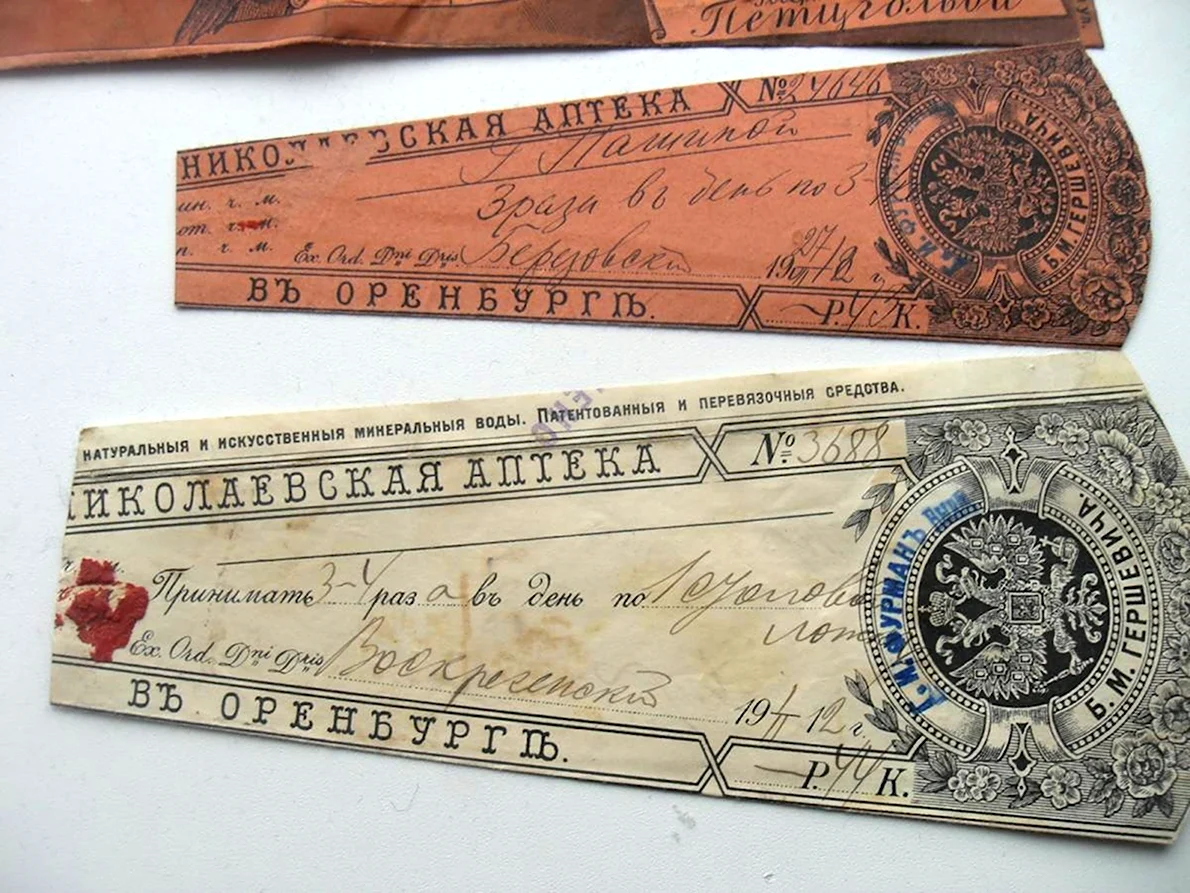 Петцгольвой
НИКОЛАЕВСКАЯ АПТЕКА
№ 24646
Г Пашиной
3 раза въ день по 3-4
ин. ч. м.
от. ч. м.
п. ч. м.
Ex. Ord. Dni Dris Березовски
1912 г.
ВЪ ОРЕНБУРГѢ.
Р. 45 К.
Б. М. ГЕРШЕВИЧА
НАТУРАЛЬНЫЯ И ИСКУССТВЕННЫЯ МИНЕРАЛЬНЫЯ ВОДЫ. ПАТЕНТОВАННЫЯ И ПЕРЕВЯЗОЧНЫЯ СРЕДСТВА.
НИКОЛАЕВСКАЯ АПТЕКА
№ 3688
Принимать 3-4 раза въ день по 1 столовой
лож
Ex. Ord. Dni Dris Воскресенский
1912 г.
ВЪ ОРЕНБУРГѢ.
Р. 44 К.
ФУРМАНЪ
Б. М. ГЕРШЕВИЧА